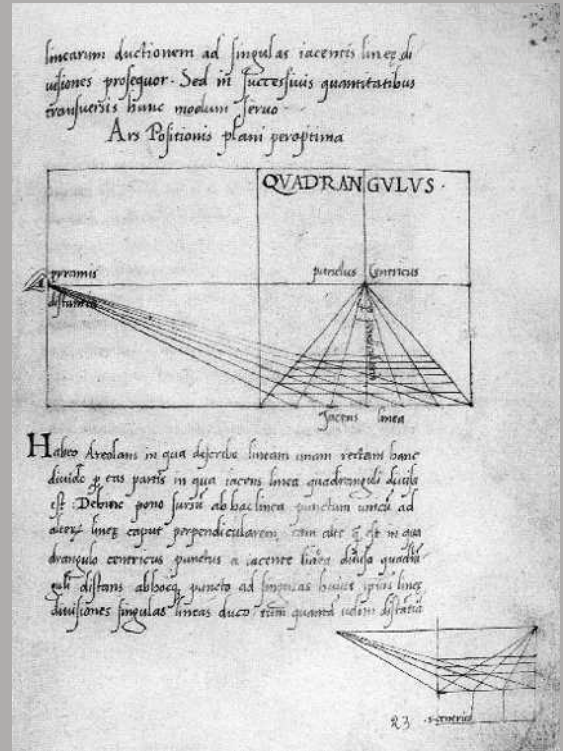 linearum ductionem ad singulas iacentis lineę di
uisiones prosequor. Sed in successiuis quantitatibus
transuersis hunc modum seruo
Ars Positionis plani peroptima
QVADRANGVLVS.
pyramis
punctus Centricus
distantia
Jacens linea
Habeo Areolam in qua describo lineam unam rectam hanc
diuido p eas partis in qua iacens linea quadranguli diuisa
est. Dehinc pono sursū ab hac linea punctum unicū ad
alterą lineę caput perpendicularem tam alte q̄ est in qua
drangulo centricus punctus a iacente linea diuisa quadrā
guli distans ab hocq puncto ad singulas huius ipsius lineę
diuisiones singulas lineas duco tum quantā uelim distātiā
23